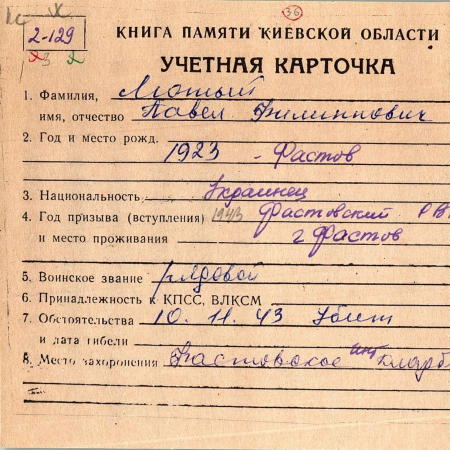 36
2-129
КНИГА ПАМЯТИ КИЕВСКОЙ ОБЛАСТИ
УЧЕТНАЯ КАРТОЧКА
1. Фамилия, Лютый
имя, отчество Павел Филиппович
2. Год и место рожд.
1923 - Фастов
3. Национальность Украинец
4. Год призыва (вступления) 1943 Фастовский РВ
и место проживания г Фастов
5. Воинское звание рядовой
6. Принадлежность к КПСС, ВЛКСМ
7. Обстоятельства 10. 11. 43 Убит
и дата гибели
8. Место захоронения Фастовское инт кладб